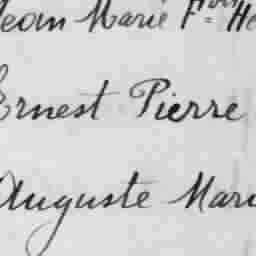 Jean Marie Fçois
Ernest Pierre
Auguste Mari